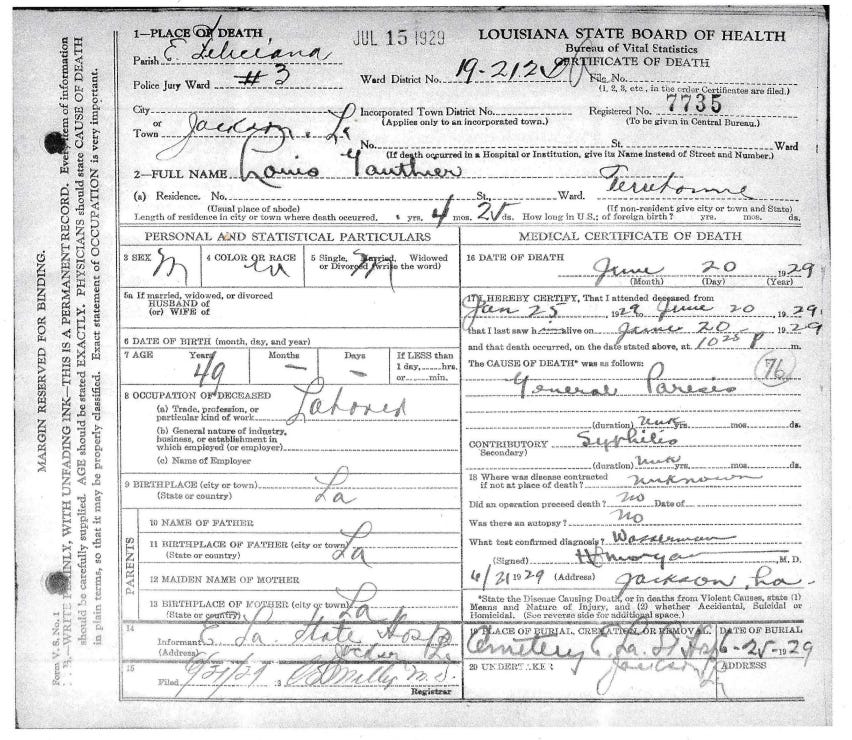 1—PLACE OF DEATH
JUL 15 1929
LOUISIANA STATE BOARD OF HEALTH
Bureau of Vital Statistics
CERTIFICATE OF DEATH
Parish E. Feliciana
Police Jury Ward #3
Ward District No. 19-212
File No.
(1, 2, 3, etc., in the order Certificates are filed.)
City
or
Town Jackson, La
Incorporated Town District No.
(Applies only to an incorporated town.)
Registered No. 7735
(To be given in Central Bureau.)
No. St. Ward
(If death occurred in a Hospital or Institution, give its Name instead of Street and Number.)
2—FULL NAME Louis Gauthier
(a) Residence. No. St. Ward. Terrebonne
(Usual place of abode)
(If non-resident give city or town and State)
Length of residence in city or town where death occurred. yrs. 4 mos. 25 ds. How long in U.S.; of foreign birth? yrs. mos. ds.
PERSONAL AND STATISTICAL PARTICULARS
3 SEX M
4 COLOR OR RACE W
5 Single, Married, Widowed
or Divorced (write the word)
5a If married, widowed, or divorced
HUSBAND of
(or) WIFE of
6 DATE OF BIRTH (month, day, and year)
7 AGE Years Months Days
If LESS than
1 day, hrs.
or min.
49 — —
8 OCCUPATION OF DECEASED
(a) Trade, profession, or
particular kind of work Laborer
(b) General nature of industry,
business, or establishment in
which employed (or employer)
(c) Name of Employer
9 BIRTHPLACE (city or town)
(State or country) La
PARENTS
10 NAME OF FATHER
11 BIRTHPLACE OF FATHER (city or town)
(State or country) La
12 MAIDEN NAME OF MOTHER
13 BIRTHPLACE OF MOTHER (city or town)
(State or country) La
14
Informant E. La State Hosp
(Address) Jackson La
15
Filed 6/21/29 M.D.
Registrar
MEDICAL CERTIFICATE OF DEATH
16 DATE OF DEATH
June 20 1929
(Month) (Day) (Year)
17 I HEREBY CERTIFY, That I attended deceased from
Jan 25, 1929 to June 20, 1929
that I last saw him alive on June 20 1929
and that death occurred, on the date stated above, at 10 25 P m.
The CAUSE OF DEATH* was as follows:
76
General Paresis
(duration) Unk yrs. mos. ds.
CONTRIBUTORY Syphilis
Secondary)
(duration) Unk yrs. mos. ds.
18 Where was disease contracted
if not at place of death? unknown
Did an operation precede death? no Date of
Was there an autopsy? no
What test confirmed diagnosis? Wasserman
(Signed) Morgan M.D.
6/21 1929 (Address) Jackson, La.
*State the Disease Causing Death, or in deaths from Violent Causes, state (1)
Means and Nature of Injury, and (2) whether Accidental, Suicidal or
Homicidal. (See reverse side for additional space.)
19 PLACE OF BURIAL, CREMATION, OR REMOVAL
Cemetery E. La. St Hsp
Jackson La
DATE OF BURIAL
6-25-1929
20 UNDERTAKER
ADDRESS
MARGIN RESERVED FOR BINDING.
Form V. S. No. 1
N. B.—WRITE PLAINLY, WITH UNFADING INK—THIS IS A PERMANENT RECORD. Every item of information
should be carefully supplied. AGE should be stated EXACTLY. PHYSICIANS should state CAUSE OF DEATH
in plain terms, so that it may be properly classified. Exact statement of OCCUPATION is very important.